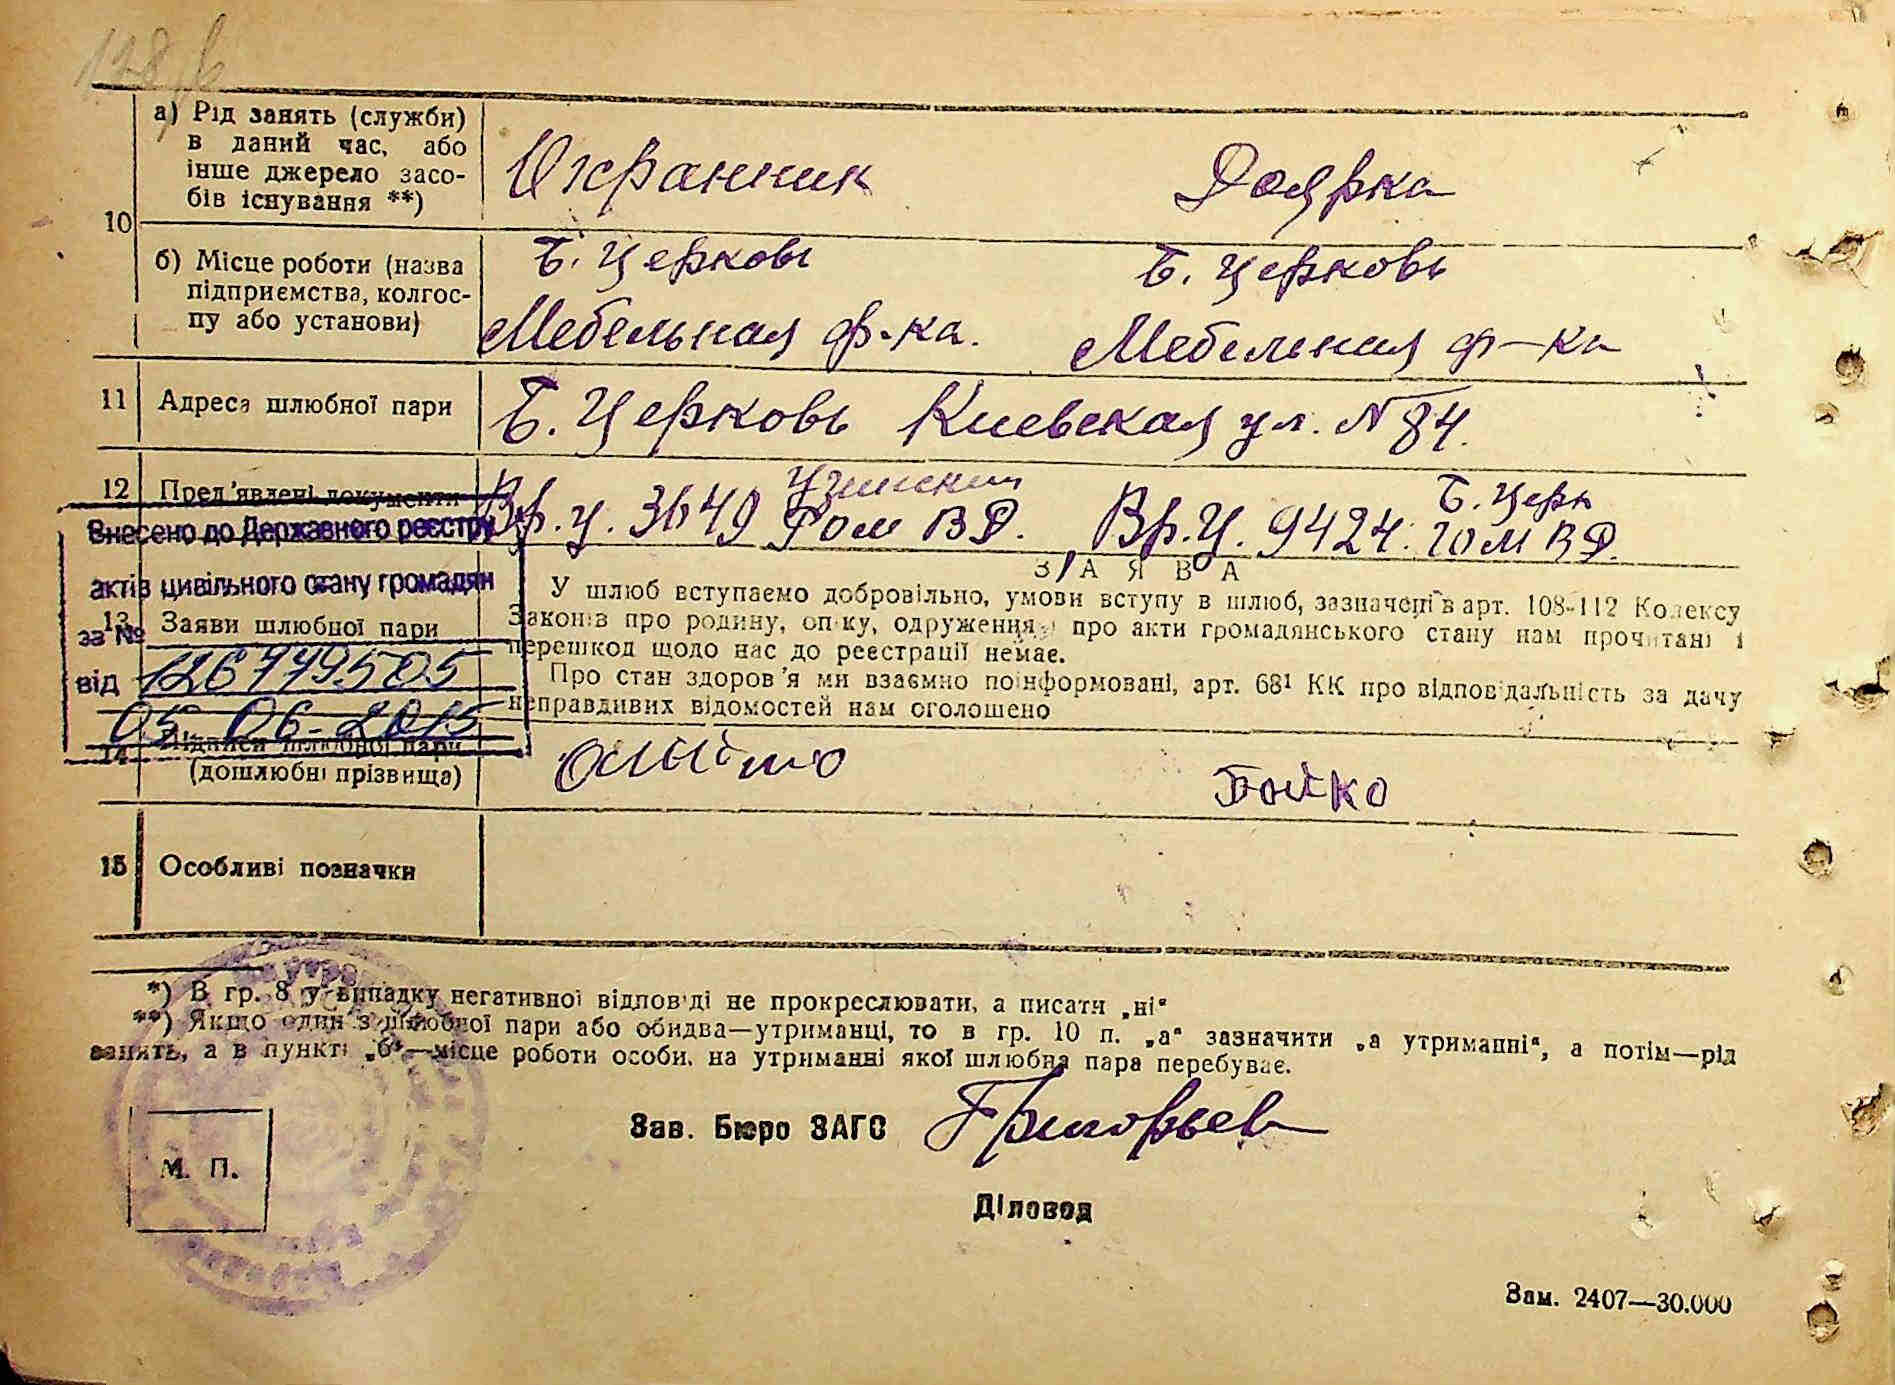 10
а) Рід занять (служби)
в даний час, або
інше джерело засо-
бів існування **)
Охранник Доярка
б) Місце роботи (назва
підприємства, колгос-
пу або установи)
Б. Церковь Б. Церковь
Мебельная ф-ка. Мебельная ф-ка
11 Адреса шлюбної пари
Б. Церковь Киевская ул. N 84.
12 Пред'явлені документи
Узинский Б. Церк
Вр. у. 3649 Ром ВД. Вр. У. 9424. ГОМ ВД.
Внесено до Державного реєстру
актів цивільного стану громадян
за №
126779505
від
05-06-2015
13 Заяви шлюбної пари
ЗАЯВА
У шлюб вступаємо добровільно, умови вступу в шлюб, зазначені в арт. 108-112 Кодексу
Законів про родину, опіку, одруження і про акти громадянського стану нам прочитані і
перешкод щодо нас до реєстрації немає.
Про стан здоров'я ми взаємно поінформовані, арт. 68¹ КК про відповідальність за дачу
неправдивих відомостей нам оголошено
14 Підписи шлюбної пари
(дошлюбні прізвища)
Бойко
15 Особливі позначки
*) В гр. 8 у випадку негативної відповіді не прокреслювати, а писати „ні“
**) Якщо один з шлюбної пари або обидва—утриманці, то в гр. 10 п. „а“ зазначити „а утриманні“, а потім—рід
занять, а в пункті „б“—місце роботи особи, на утриманні якої шлюбна пара перебуває.
Зав. Бюро ЗАГС Григорьев
М. П.
Діловод
Зам. 2407—30.000